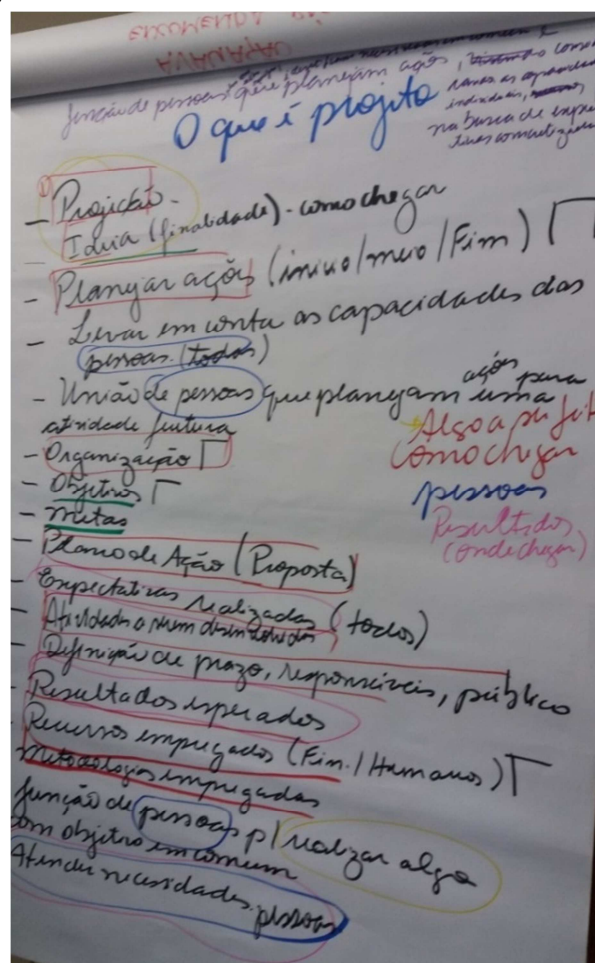 função de pessoas que planejam ações,
O que é projeto
na busca de
- Projeção -
Ideia (finalidade) - como chegar
- Planejar ações (início/meio/Fim)
- Levar em conta as capacidades das
pessoas. (todos)
- União de pessoas que planejam uma
ações para
atividade futura
- Organização
- Objetivos
- metas
- Plano de Ação (Proposta)
- Expectativas realizadas (todos)
- Atividades a serem desenvolvidas
- Definição de prazo, responsáveis, público
- Resultados esperados
- Recursos empregados (Fin./Humanos)
Metodologias empregadas
função de pessoas p/ realizar algo
com objetivo em comum
Atender necessidades pessoas
Algo a ser
como chegar
pessoas
Resultados
(onde chegar)